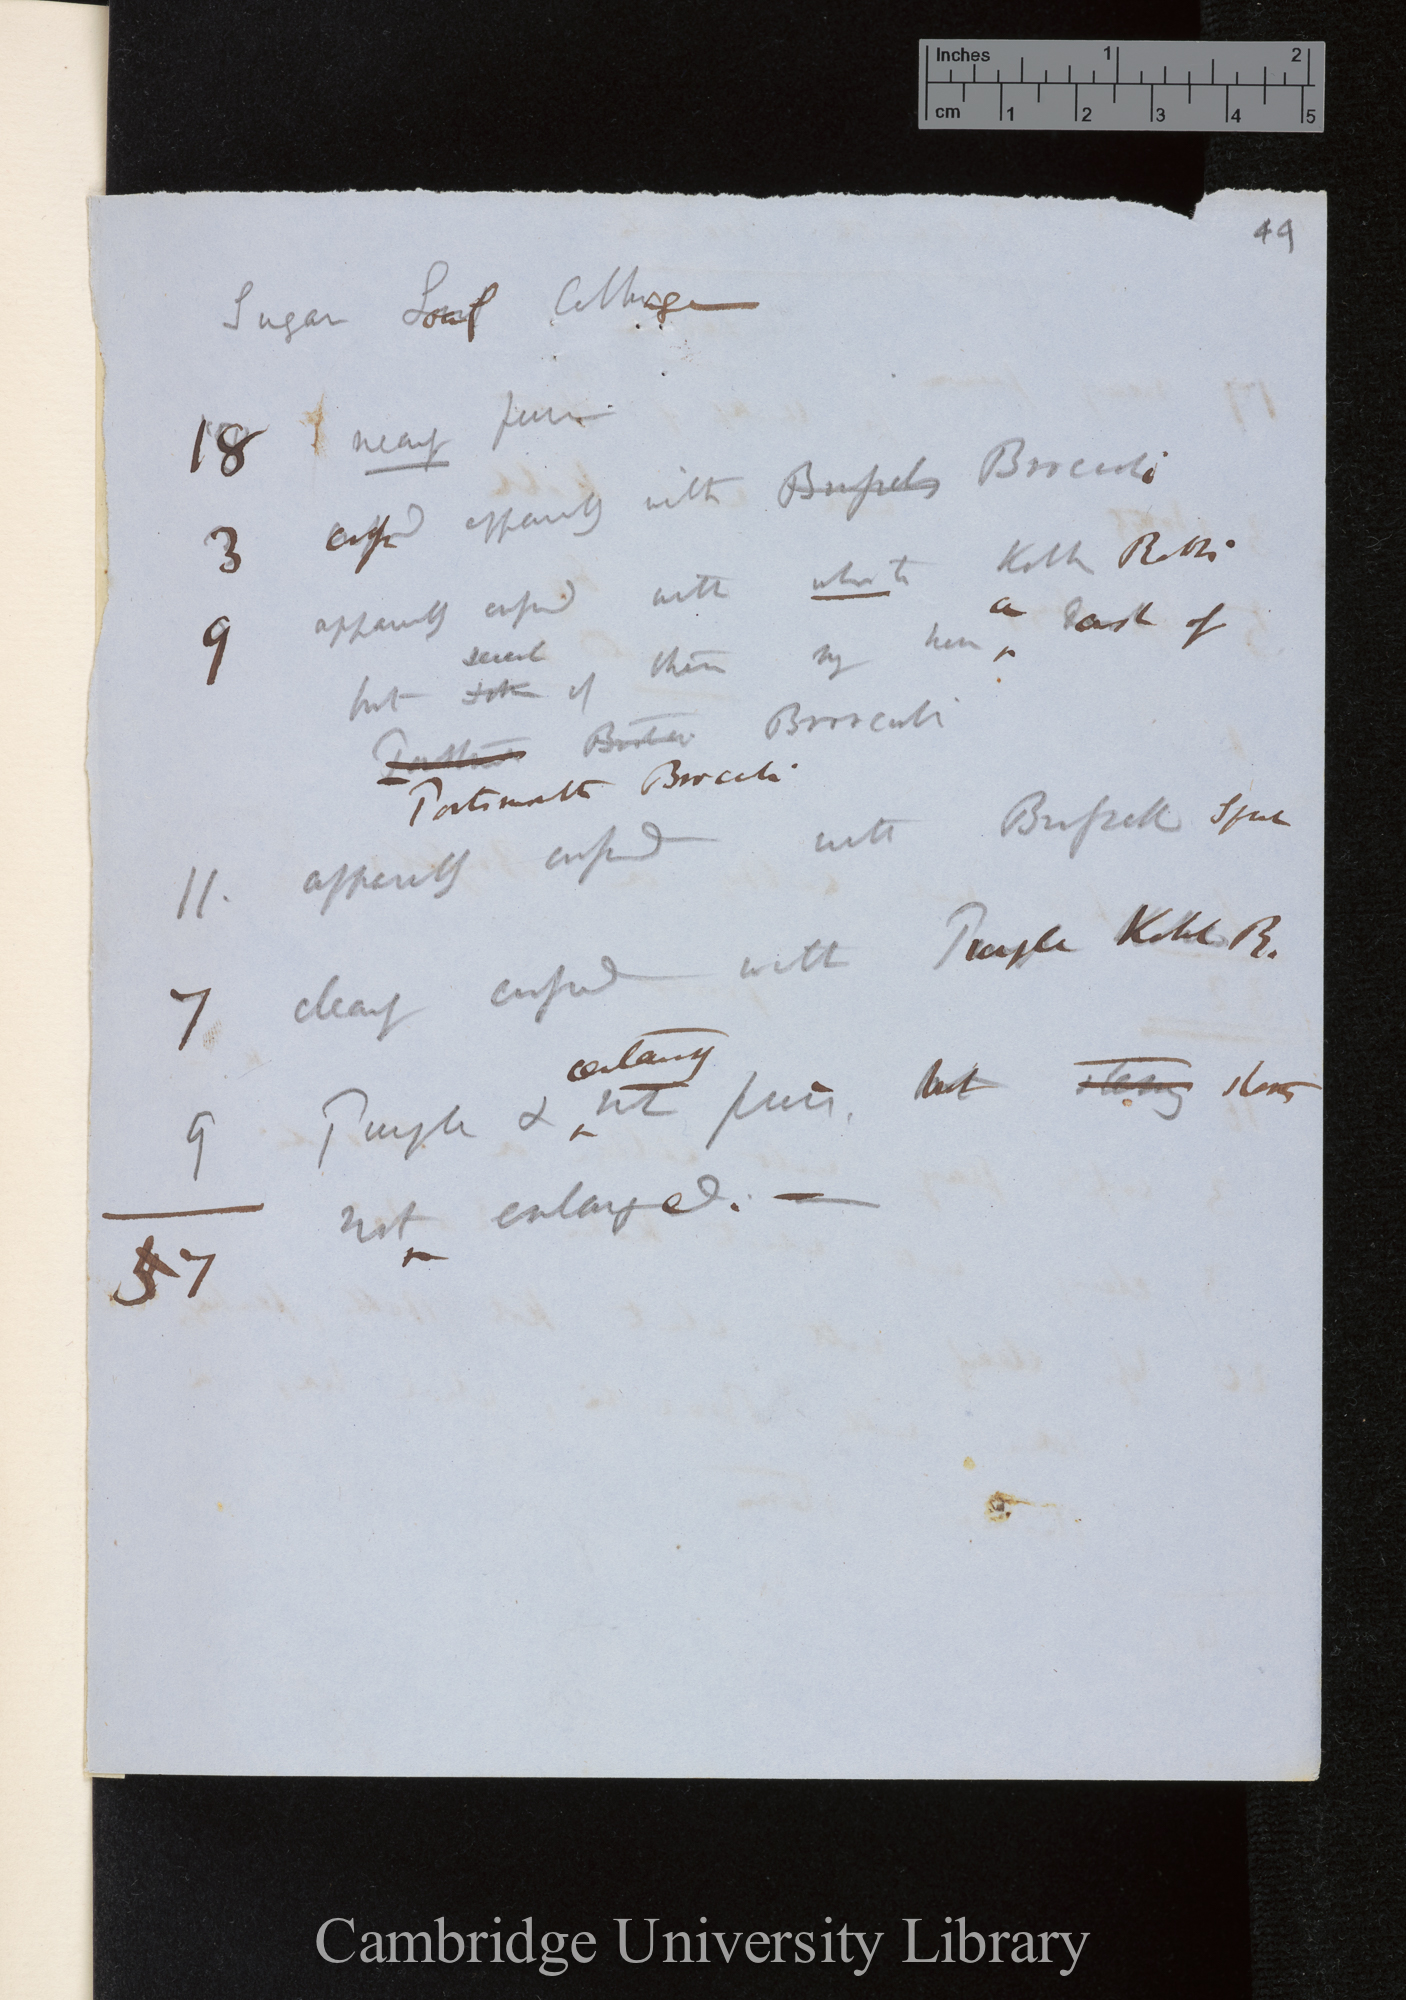 Inches 1 2
cm 1 2 3 4 5
49
Sugar Loaf Cabbage
18 nearly pure
3 crossed apparently with Brussels Broccoli
9 apparently crossed with white Kohl Rabbi
but several of them may have a dash of
Broccoli
Portsmouth Broccoli
11. apparently crossed with Brussels Sprouts
7 clearly crossed with Purple Kohl R.
9 Purple & certainly not pure, but stems
not enlarged. —
57
Cambridge University Library